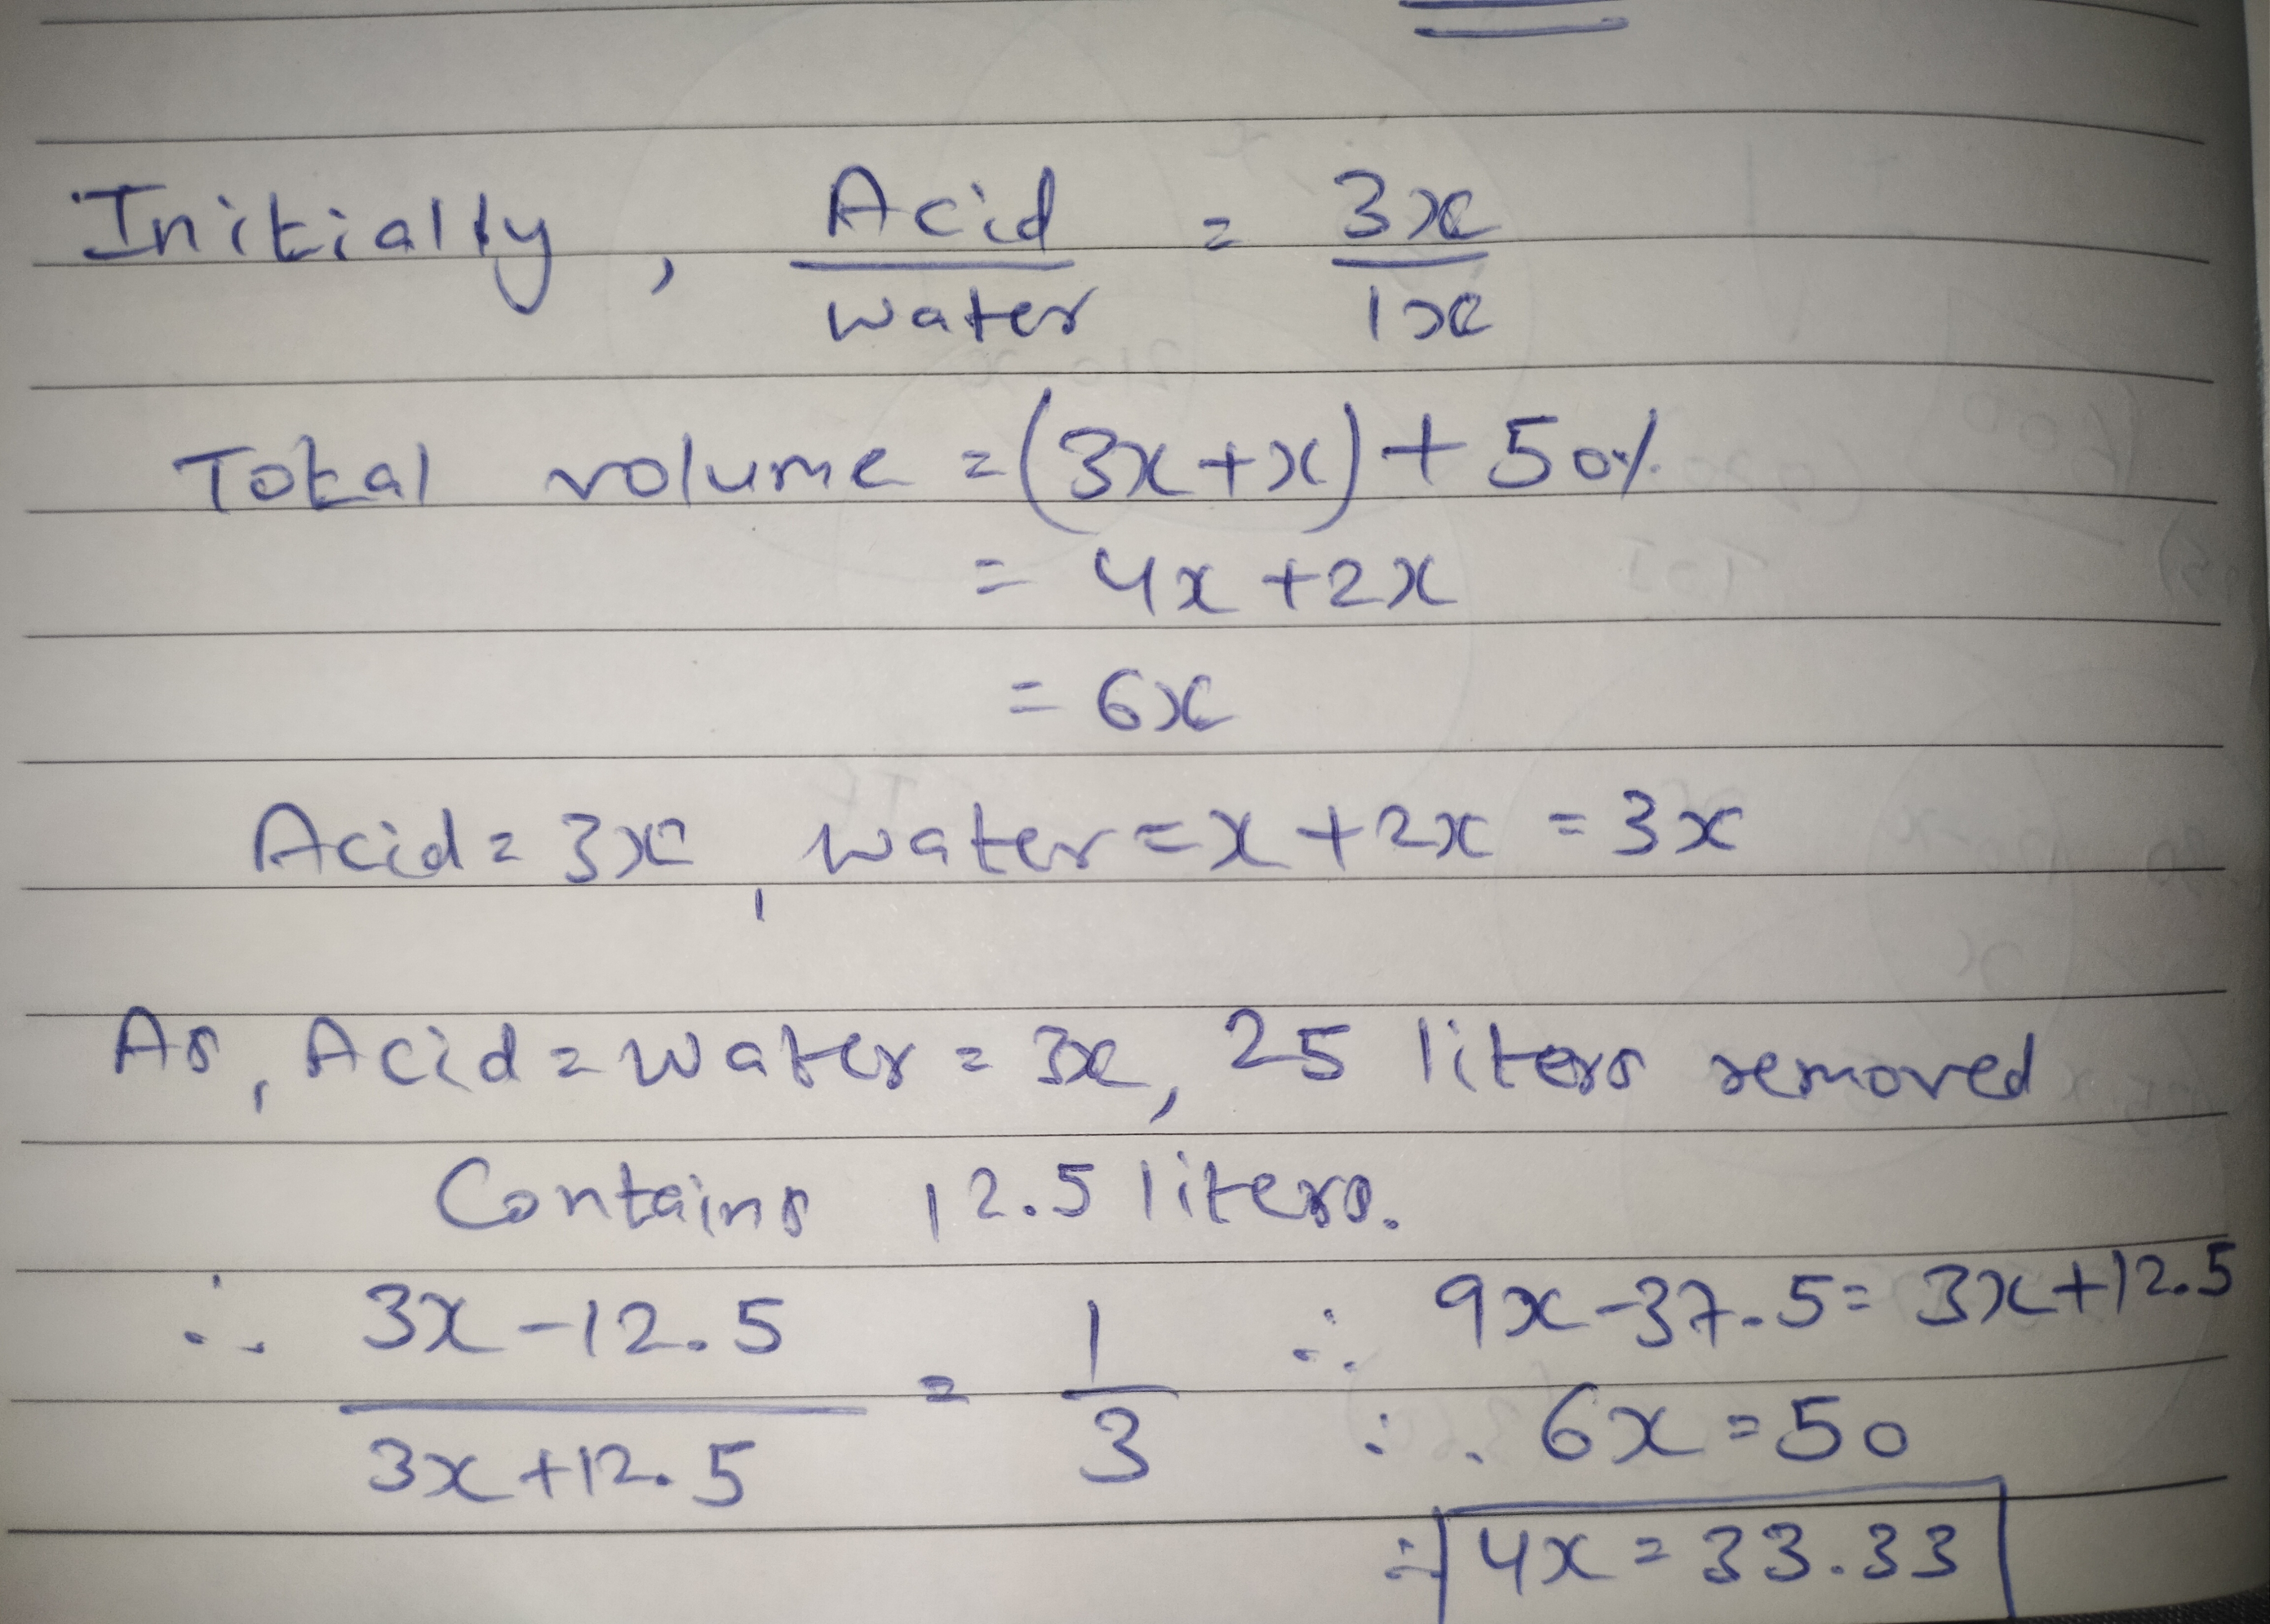 Initially, Acid/water = 3x/1x
Total volume = (3x+x) + 50%
= 4x + 2x
= 6x
Acid = 3x, water = x + 2x = 3x
As, Acid = water = 3x, 25 liters removed
Contains 12.5 liters.
∴ (3x-12.5)/(3x+12.5) = 1/3
∴ 9x-37.5 = 3x+12.5
∴ 6x = 50
∴ 4x = 33.33